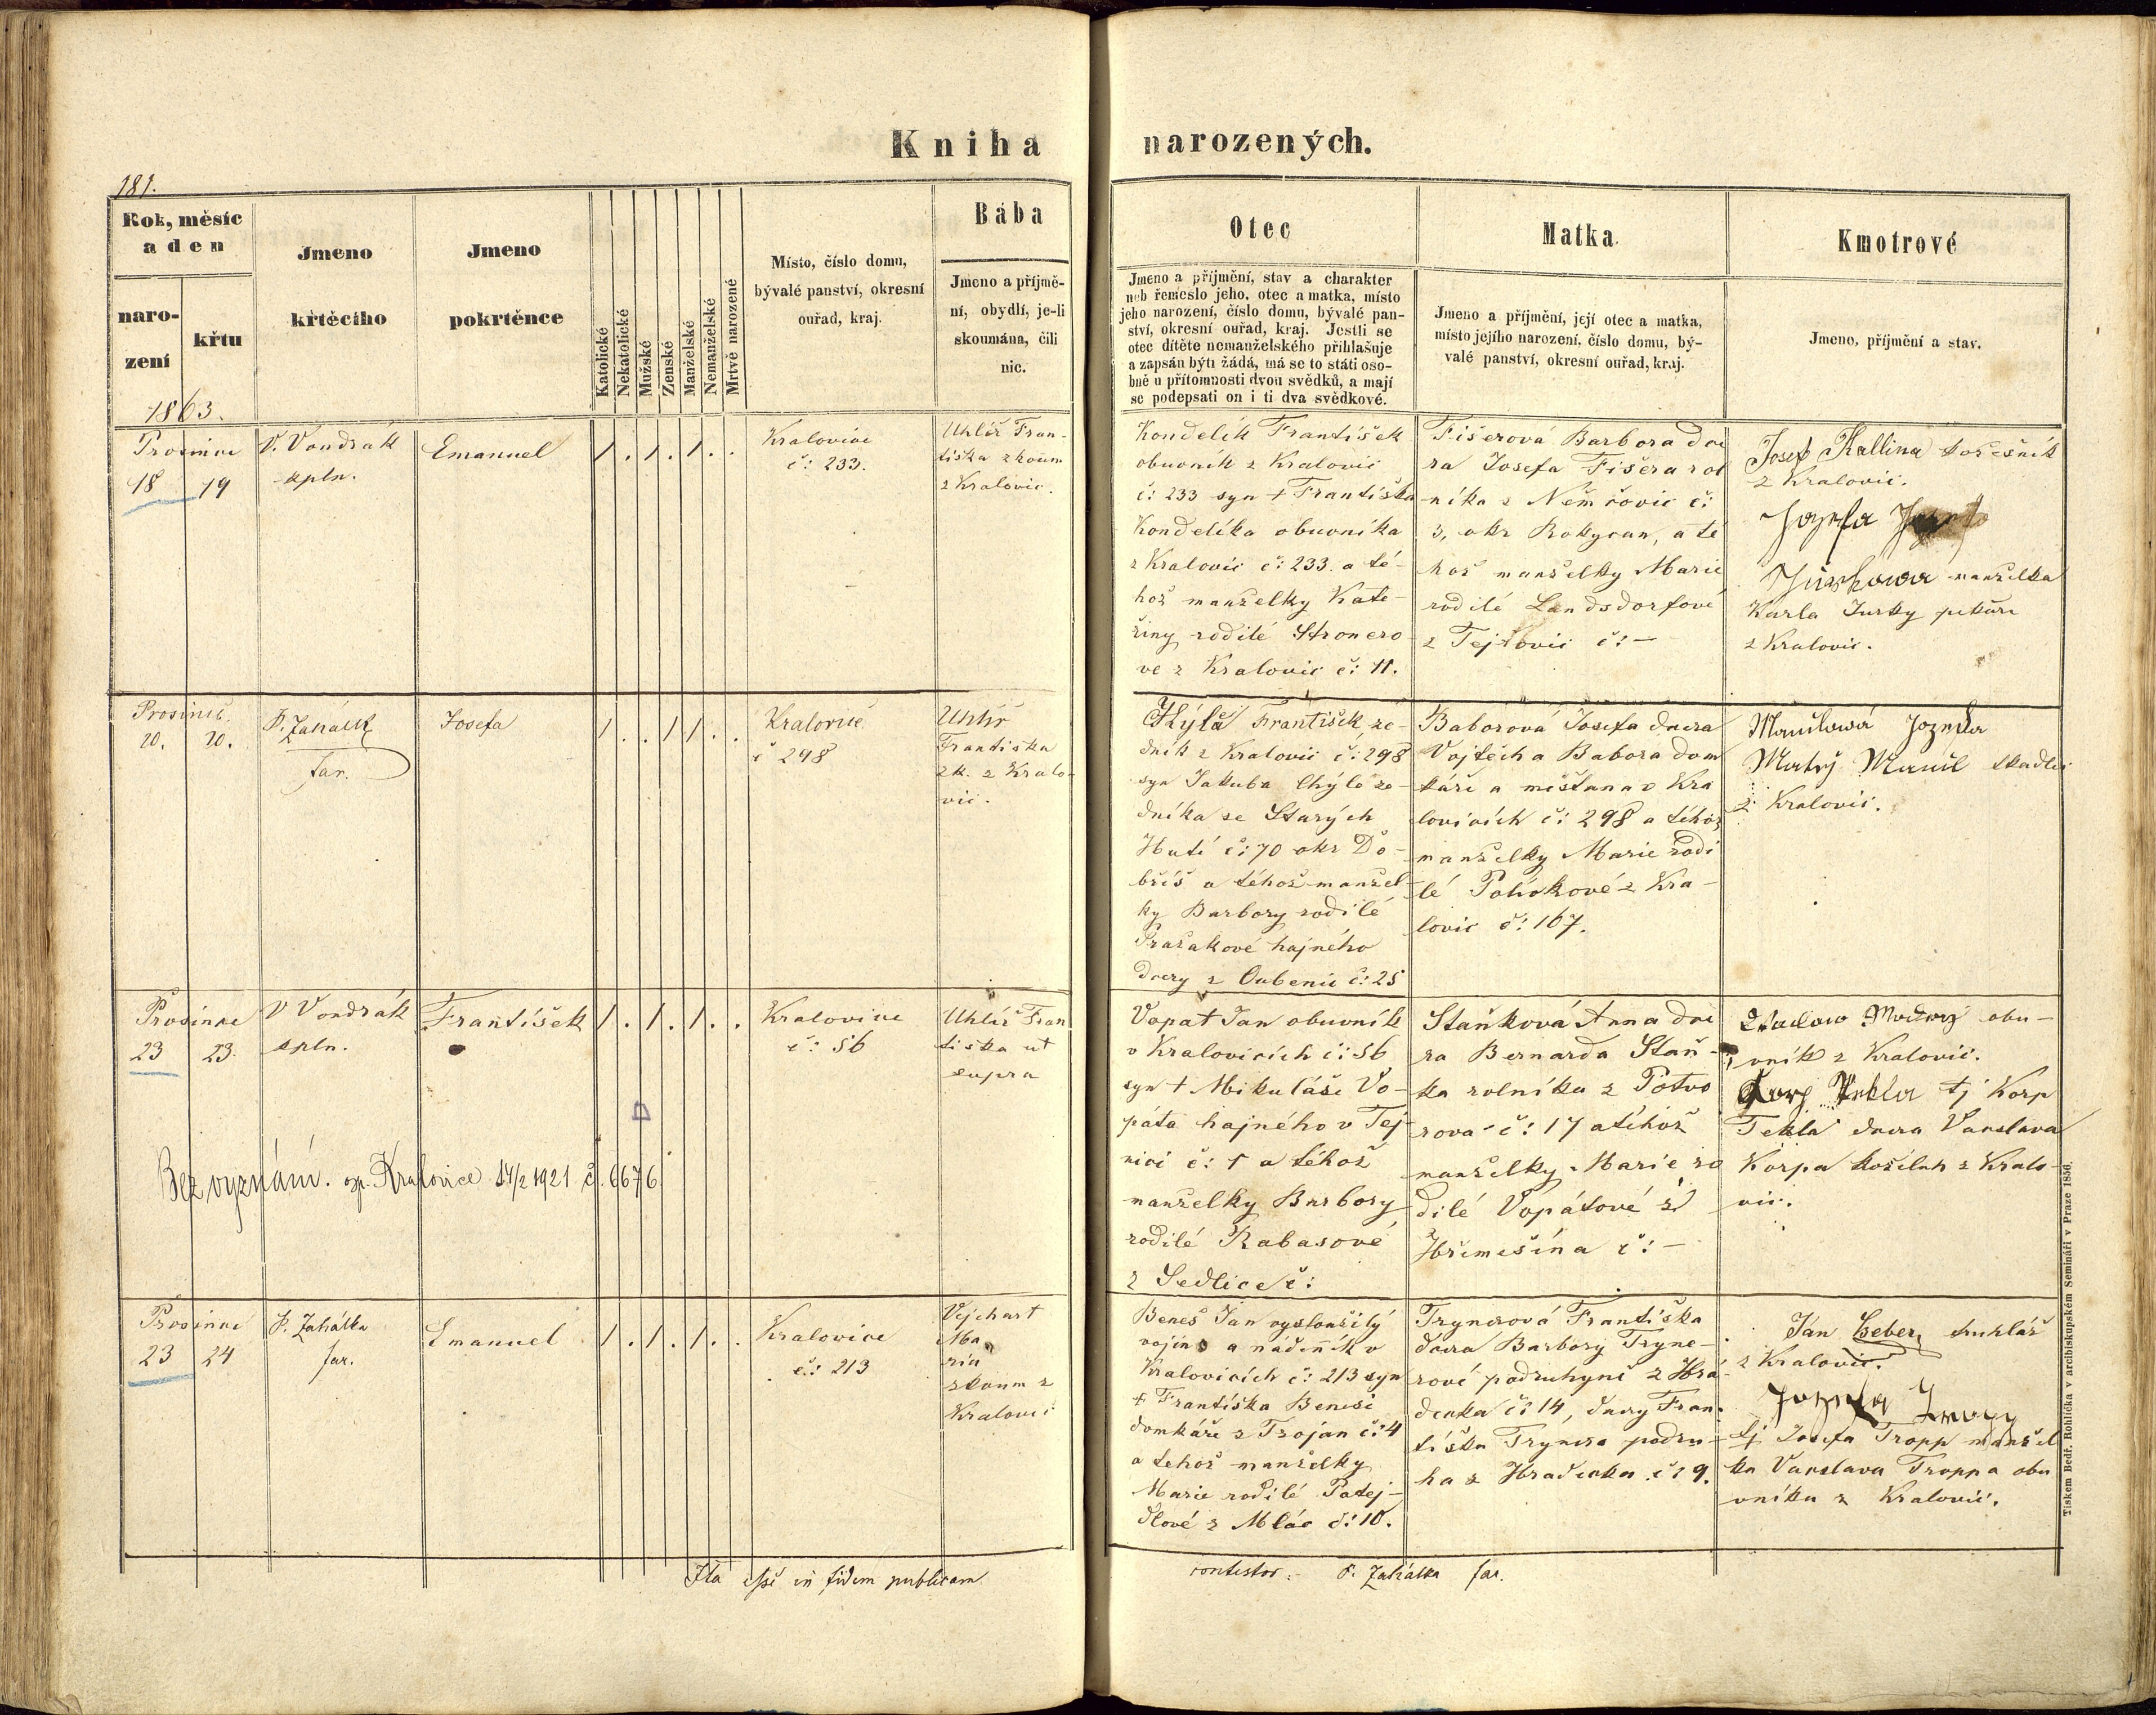 Kniha narozených.
181.
Rok, měsíc
a den
naro-
zení
křtu
1863.
Jmeno
křtěcího
Jmeno
pokrtěnce
Katolické
Nekatolické
Mužské
Ženské
Manželské
Nemanželské
Mrtvě narozené
Místo, číslo domu,
bývalé panství, okresní
ouřad, kraj.
Bába
Jmeno a příjmě-
ní, obydlí, je-li
skoumána, čili
nic.
Otec
Jmeno a příjmění, stav a charakter
neb řemeslo jeho, otec a matka, místo
jeho narození, číslo domu, bývalé pan-
ství, okresní ouřad, kraj. Jestli se
otec dítěte nemanželského přihlašuje
a zapsán býti žádá, má se to státi oso-
bně u přítomnosti dvou svědků, a mají
se podepsati on i ti dva svědkové.
Matka
Jmeno a příjmění, její otec a matka,
místo jejího narození, číslo domu, bý-
valé panství, okresní ouřad, kraj.
Kmotrové
Jmeno, příjmění a stav.
Prosince
18 19
V. Vondrák
kpln.
Emanuel
1 . 1 . 1 . .
Kralovice
č: 233.
Uhlíř Fran-
tiska zkoum
z Kralovic.
Kondelík František
obuvník z Kralovic
č: 233 syn + Františka
Kondelíka obuvníka
z Kralovic č: 233. a té-
hož manželky Kate-
řiny rodilé Stronero
ve z Kralovic č: 11.
Fišerová Barbora dce
ra Josefa Fišera rol
níka z Němčovic č:
3, okr Rokycan, a té
hož manželky Marie
rodilé Landsdorfové
z Tejřovic č: –
Josef Kallina
z Kralovic.
Jozefa
manželka
Karla Jurky pekaře
z Kralovic.
Prosinec.
20. 20.
P. Zahálka
far.
Josefa
1 . . 1 1 . .
Kralovice
č 298
Uhlíř
Františka
zk. z Kralo-
vic.
Chýle František, ze-
dník z Kralovic č: 298
syn Jakuba Chýle ze-
dníka ze Starých
Hutí č: 70 okr Do-
bříš a téhož manžel-
ky Barbory rodilé
Pražakové hajného
dcery z Oubenic č: 25
Baborová Josefa dcera
Vojtěcha Babora dom
káře a měšťana v Kra
lovicích č: 298 a téhož
manželky Marie rodi
lé Polívkové z Kra-
lovic č: 167.
Maušlowá Jozefa
Matěj Maušl tkadlec
z Kralovic.
Prosince
23 23.
V Vondrák
kpln.
František
1 . 1 . 1 . .
Kralovice
č: 56
Uhlíř Fran
tiska ut
supra
Bez vyznání. osp. Kralovice 14/2 1921 č. 6676
Vopat Jan obuvník
v Kralovicích č: 56
syn + Mikuláše Vo-
páta hajného v Tej
nici č: 1 a téhož
manželky Barbory
rodilé Rabasové
z Sedlice č:
Staňková Anna dce
ra Bernarda Staň-
ka rolníka z Potvo
rova č: 17 a téhož
manželky Marie ro
dilé Vopátové z
Hřimešína č: –
obu-
vník z Kralovic.
Tekla tj Korp
Tekla dcera Vanclava
Korpa z Kralo-
vic.
Prosince
23 24
P. Zahálka
far.
Emanuel
1 . 1 . 1 . .
Kralovice
č: 213
Vejchart
Ma
ria
zkoum z
Kralovic
Beneš Jan vysloužilý
vojín a nádeník v
Kralovicích č: 213 syn
+ Františka Beneše
domkáře z Trojan č: 4
a tehož manželky
Marie rodilé Patej-
dlové z Mlác č: 10.
Trynerová Františka
dcera Barbory Tryne-
rové podruhyně z Hra-
decka č: 14, dcery Fran-
tiška Trynera podru-
ha z Hradecka č: 9.
Jan Leber truhlář
z Kralovic.
Jozefa
tj Josefa Tropp manžel
ka Vanclava Troppa obu
vníka z Kralovic.
Ita esse in fidem publicam
contestor: P. Zahálka far.
Tiskem Bedř. Rohlíčka v arcibiskupském Semináři v Praze 1856.